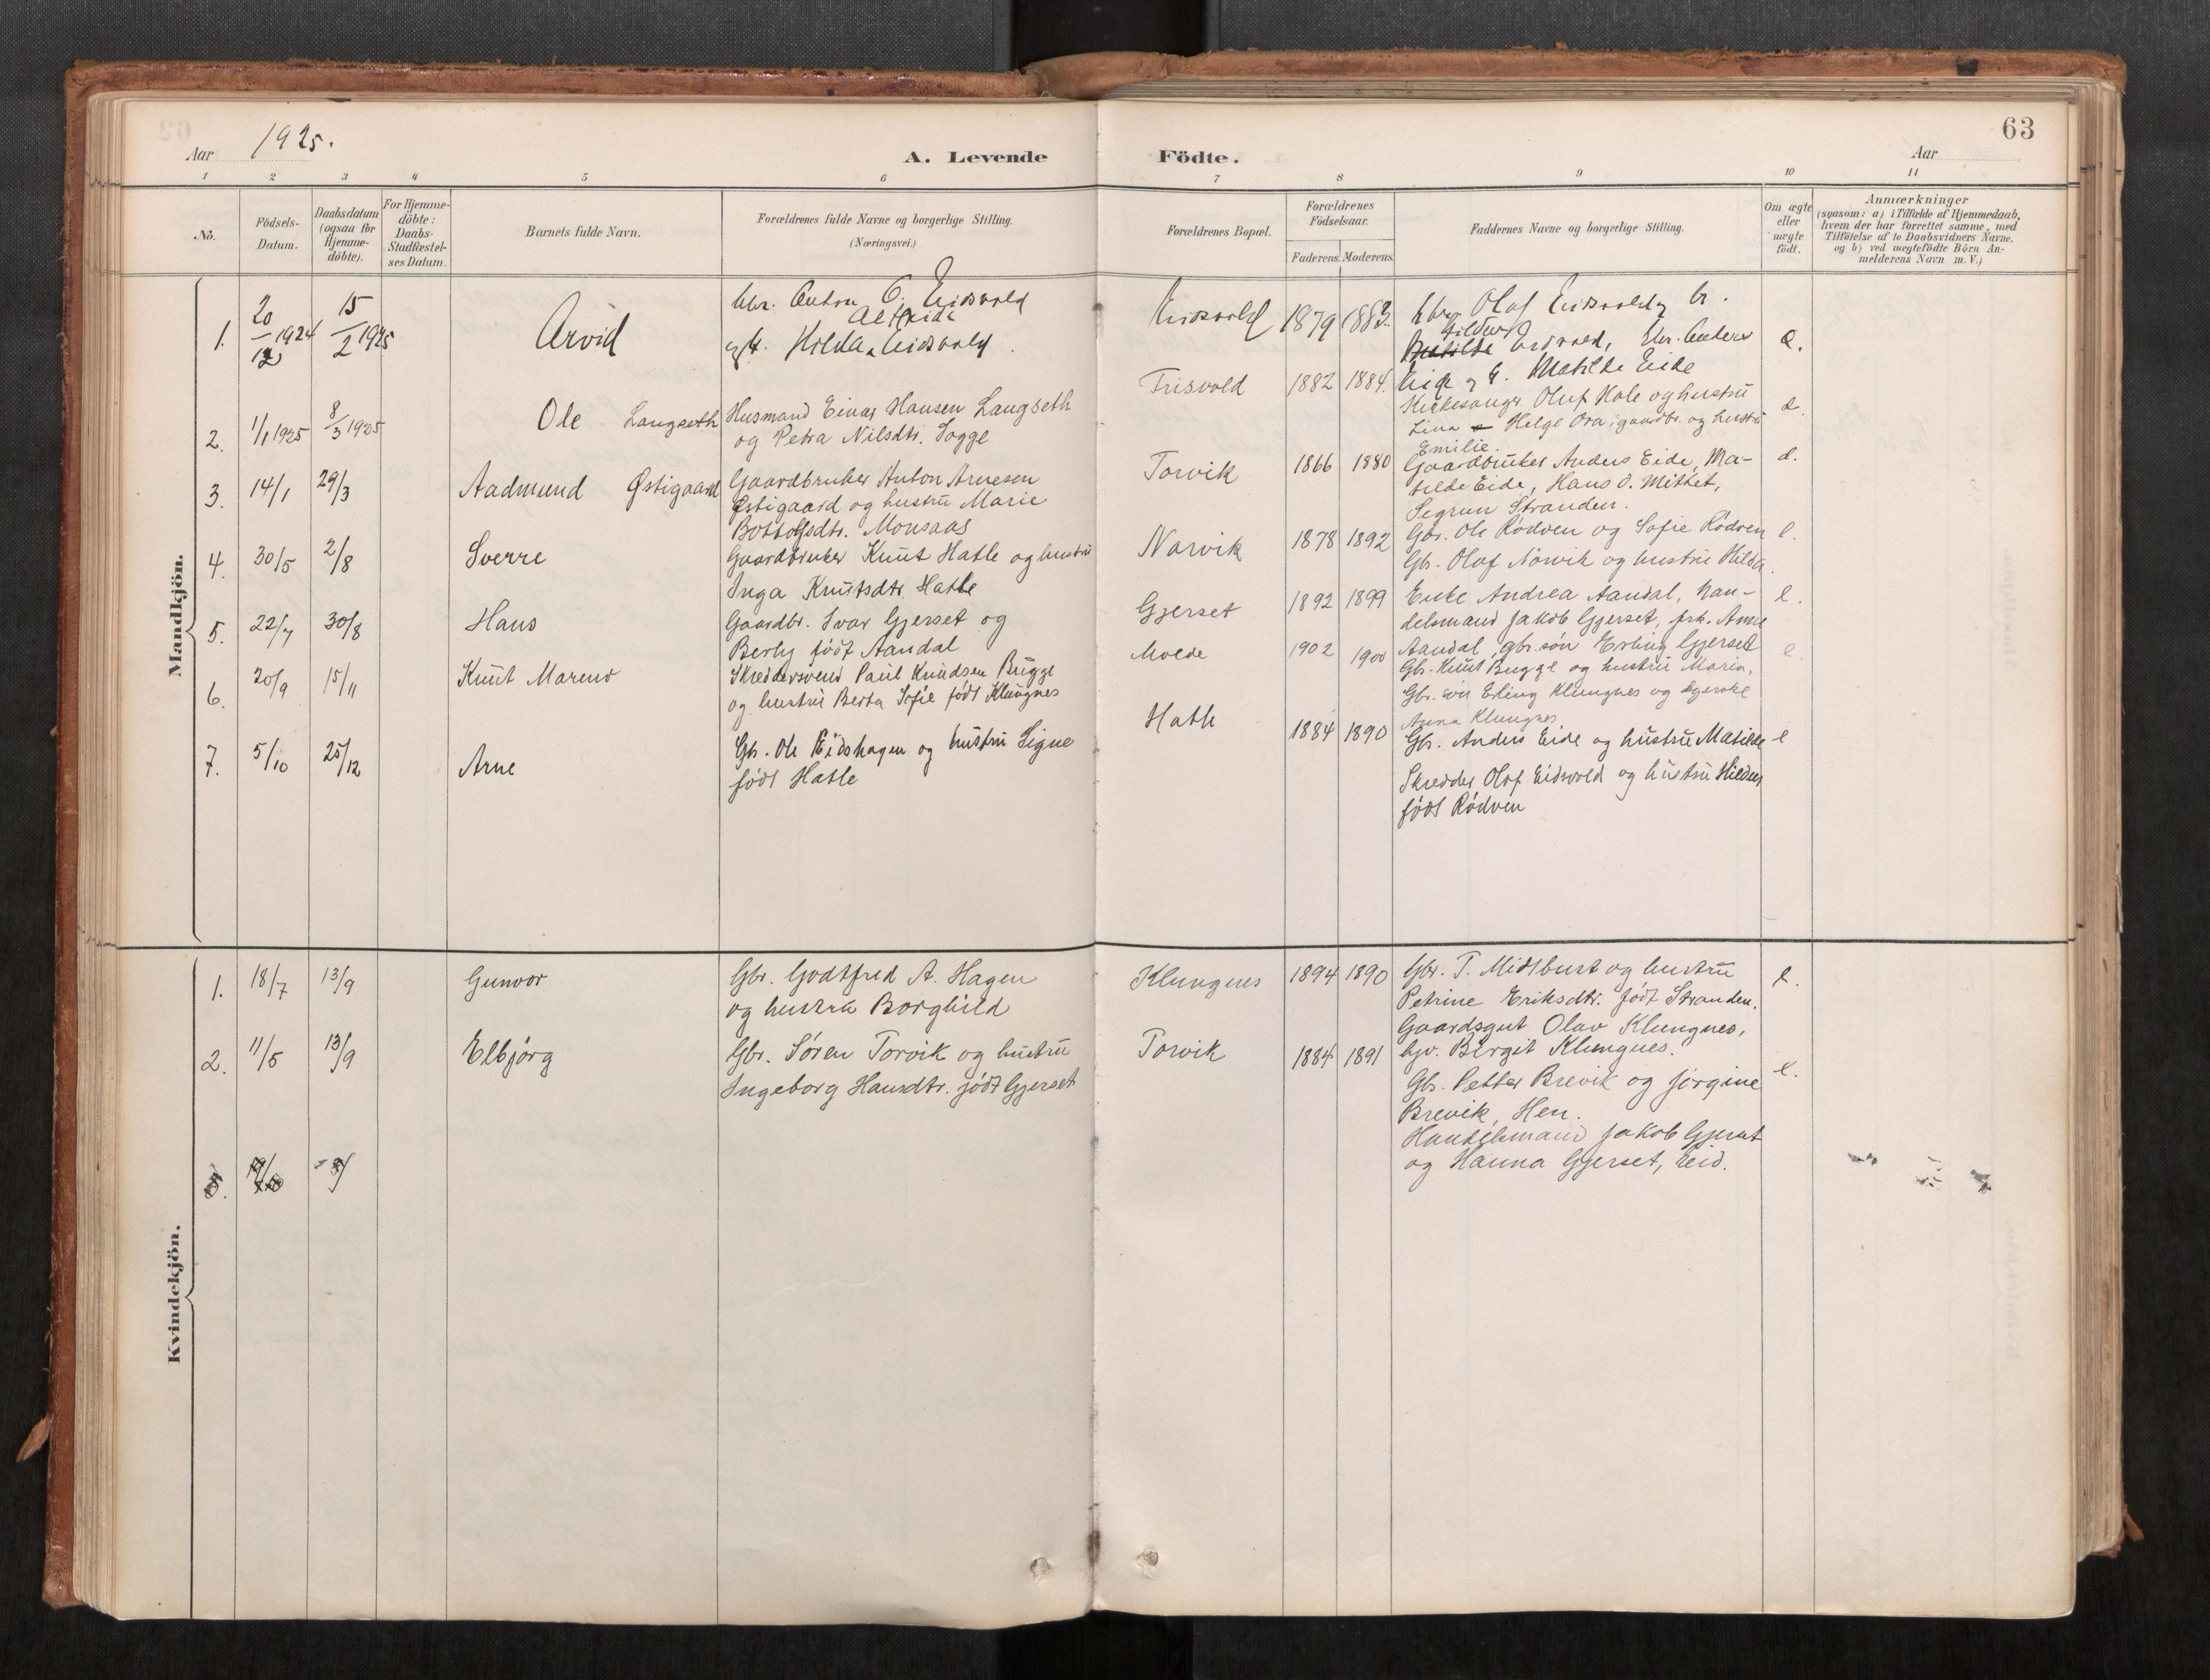 63
Aar 1925.
A. Levende Födte.
Aar
1 2 3 4 5 6 7 8 9 10 11
No.
Födsels-Datum.
Daabsdatum (ogsaa for Hjemme-döbte).
For Hjemme-döbte: Daabs-Stadfæstel-ses Datum.
Barnets fulde Navn.
Forældrenes fulde Navne og borgerlige Stilling.
(Næringsvei.)
Forældrenes Bopæl.
Forældrenes Födselsaar.
Faderens. Moderens.
Faddernes Navne og borgerlige Stilling.
Om ægte eller uægte födt.
Anmærkninger
(saasom: a) i Tilfælde af Hjemmedaab,
hvem der har forrettet samme, med
Tilföielse af to Daabsvidners Navne,
og b) ved uægtefödte Börn An-
melderens Navn m. V.)
Mandkjön.
1. 20/12 1924 15/2 1925 Arvid
Gbr. Anton O. Eidsvold
Hilda Eidsvold.
Eidsvold 1879 1883.
Gbr. Olaf Eidsvold
Hildur Eidsvold, Gbr. Anders
Eide og Matilde Eide
2. 1/1 1925 8/3 1925 Ole Langseth
Husmand Einar Hansen Langseth
og Petra Nilsdtr. Sogge
Frisvold 1882 1884.
Kirkesanger Oluf Hole og hustru
Lina Helge Ora, gaardbr. og hustru
Emilie.
3. 14/1 29/3 Aadmund Østigaard
Gaardbruker Anton Arnesen
Østigaard og hustru Marie
Bottolfsdtr. Monsaas
Torvik 1866 1880
Gaardbruker Anders Eide, Ma-
tilde Eide, Hans O. Mittet,
Segrun Stranden.
4. 30/5 2/8 Sverre
Gaardbruker Knut Hatle og hustru
Inga Knutsdtr. Hatle
Norvik 1878 1892
Gbr. Ole Rødven og Sofie Rødven
Gbr. Olaf Norvik og hustru Hilda.
5. 22/7 30/8 Hans
Gaardbr. Ivar Gjerset og
Berly født Aandal
Gjerset 1892 1899
Enke Andrea Aandal, han-
delsmand Jakob Gjerset, frk. Anne
Aandal, gbr.søn Erling Gjerset
6. 20/9 15/11 Knut Mareno
Skreddersvend Paul Knudsen Bugge
og hustru Berta Sofie født Klungnes
Molde 1902 1900
Gbr. Knut Bugge og hustru Maria,
Gbr. søn Erling Klungnes og
Anna Klungnes
7. 5/10 25/12 Arne
Gbr. Ole Eidshagen og hustru Signe
født Hatle
Hatle 1884 1890
Gbr. Anders Eide og hustru Matilde
Skredder Olaf Eidsvold og hustru Hildur
født Rødven
Kvindekjön.
1. 18/7 13/9 Gunvor
Gbr. Godtfred A. Hagen
og hustru Borghild
Klungnes 1894 1890
Gbr. T. Midtbust og hustru
Petrine Eriksdtr. født Stranden.
Gaardsgut Olav Klungnes,
Birgit Klungnes.
2. 11/5 13/9 Elbjørg
Gbr. Søren Torvik og hustru
Ingeborg Hansdtr. født Gjerset
Torvik 1884 1891
Gbr. Petter Brevik og Jørgine
Brevik, Hen.
Handelsmand Jakob Gjerset
og Hanna Gjerset, Eid.